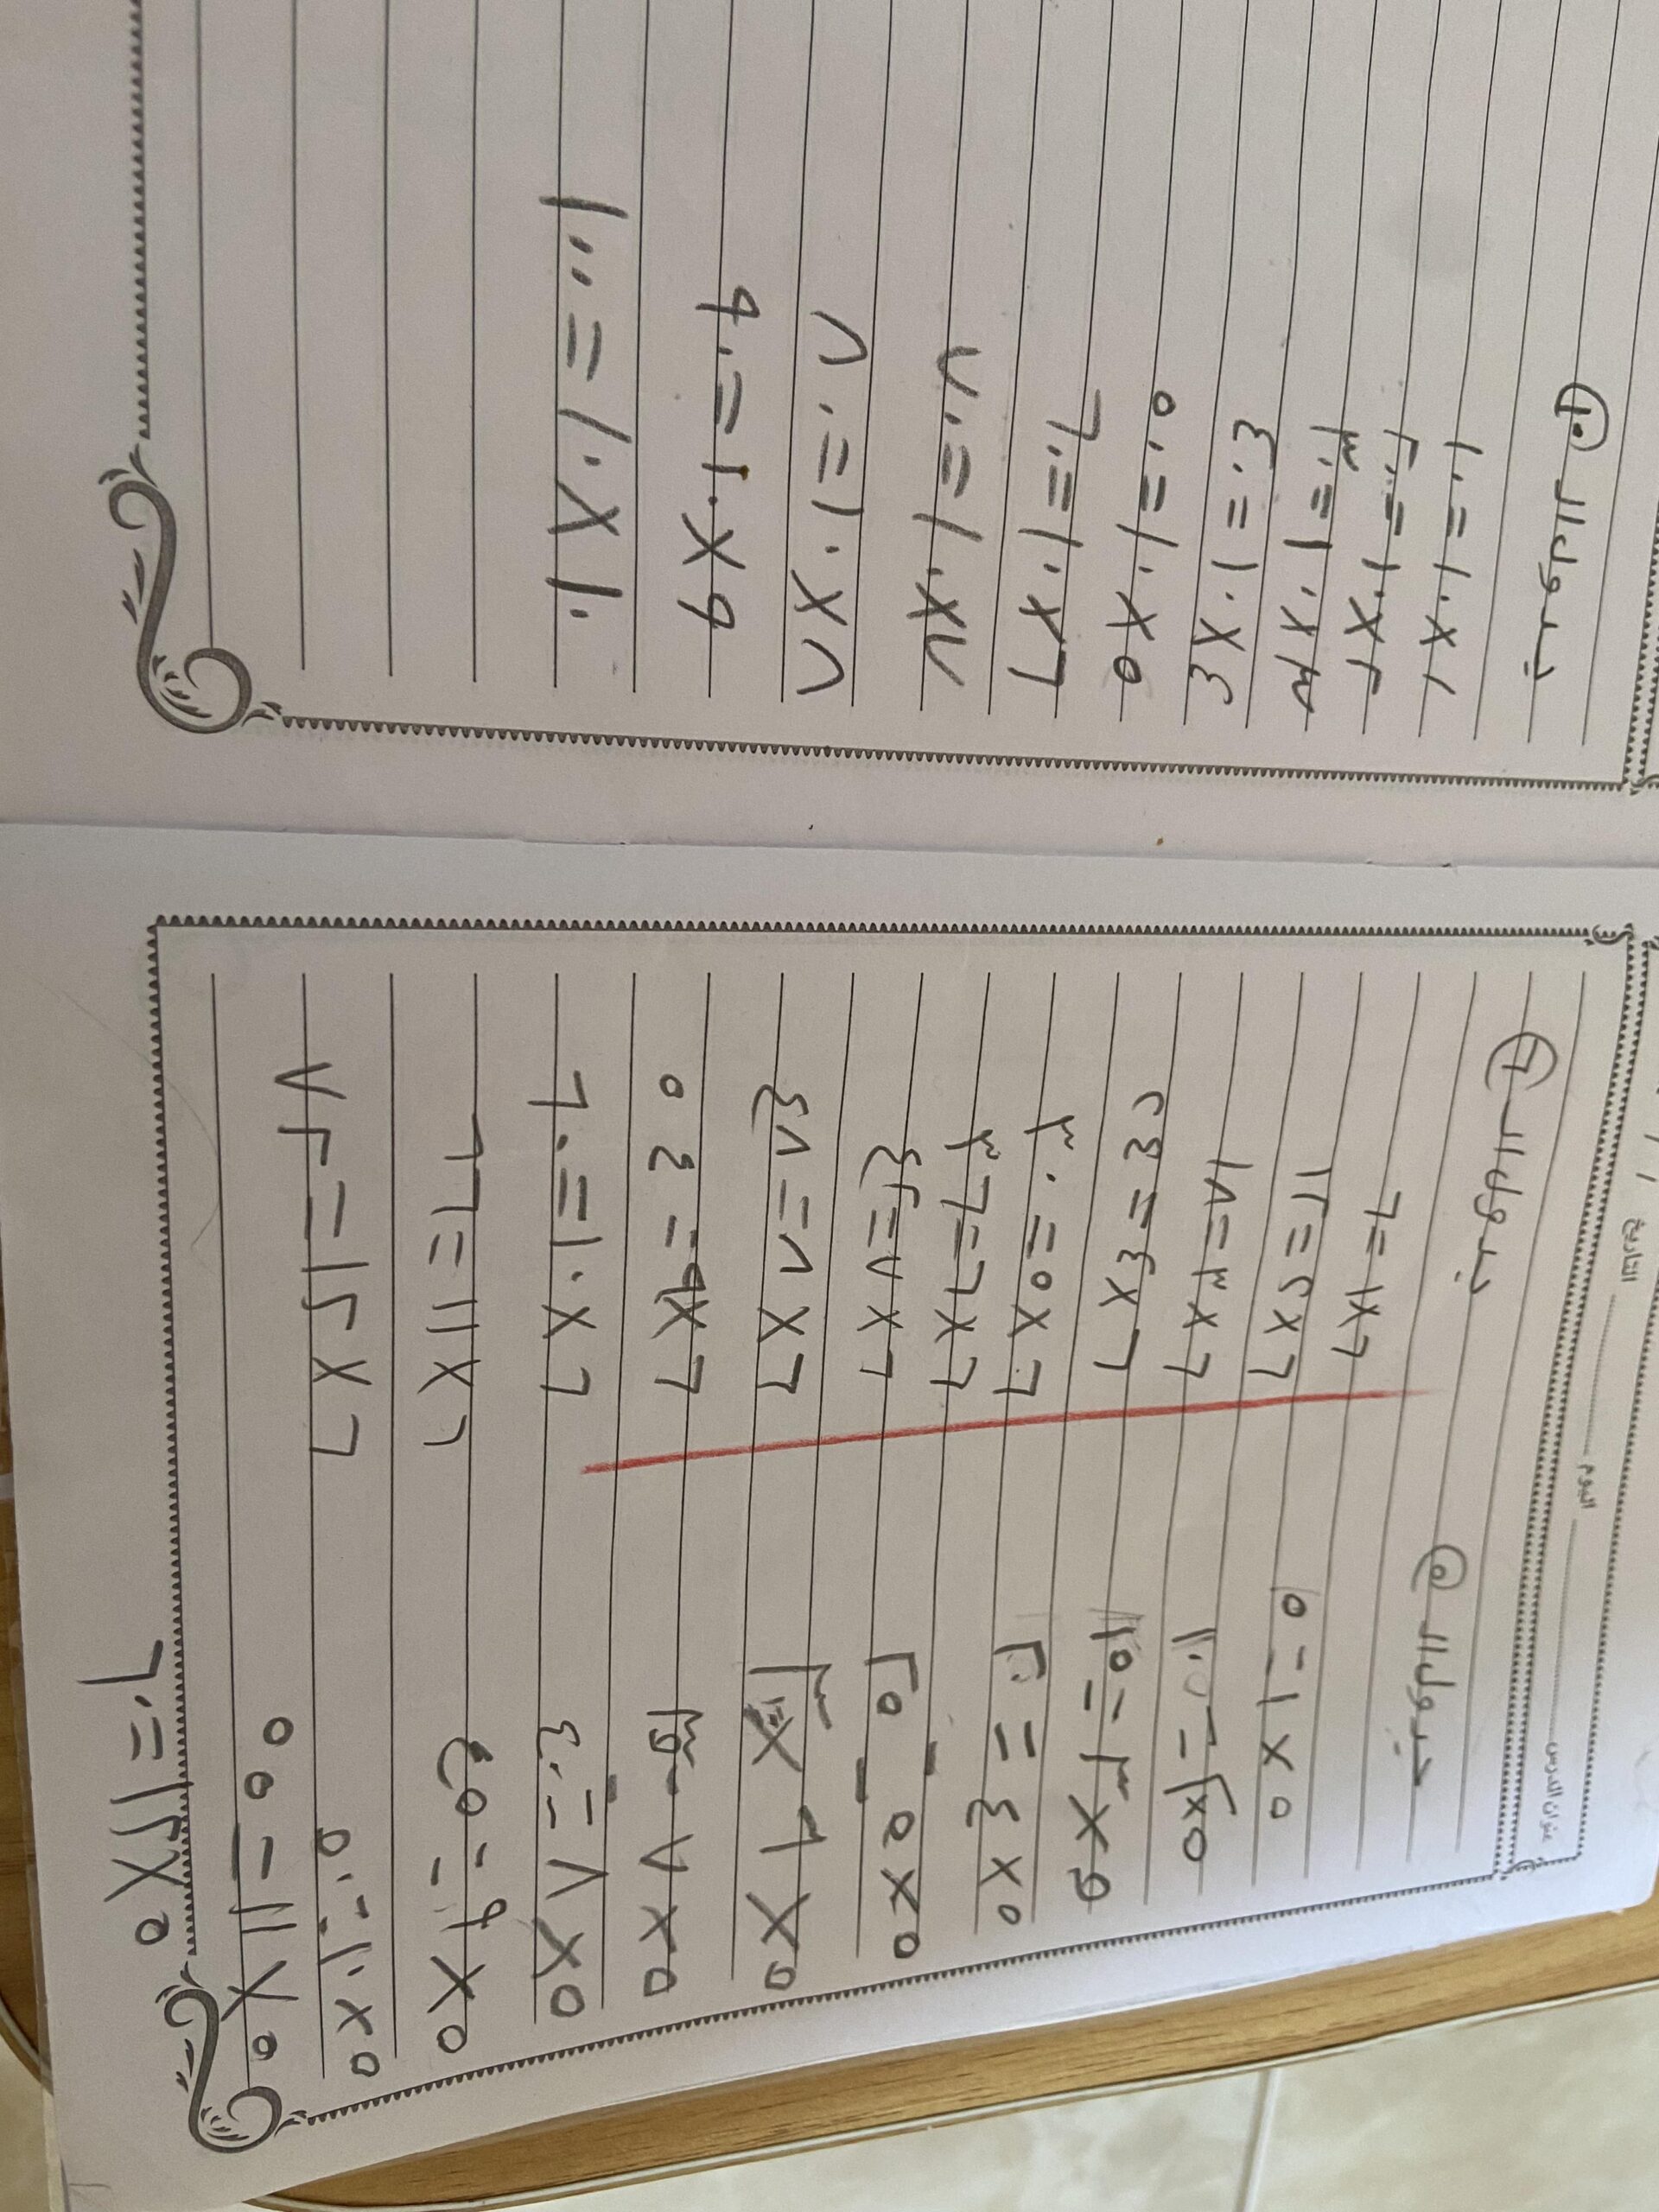 عنوان الدرس اليوم التاريخ / /
جدول الـ ٥
٥ × ١ = ٥
٥ × ٢ = ١٠
٥ × ٣ = ١٥
٥ × ٤ = ٢٠
٥ × ٥ = ٢٥
٥ × ٦ = ٣٠
٥ × ٧ = ٣٥
٥ × ٨ = ٤٠
٥ × ٩ = ٤٥
٥ × ١٠ = ٥٠
٥ × ١١ = ٥٥
٥ × ١٢ = ٦٠
جدول الـ ٦
٦ × ١ = ٦
٦ × ٢ = ١٢
٦ × ٣ = ١٨
٦ × ٤ = ٢٤
٦ × ٥ = ٣٠
٦ × ٦ = ٣٦
٦ × ٧ = ٤٢
٦ × ٨ = ٤٨
٦ × ٩ = ٥٤
٦ × ١٠ = ٦٠
٦ × ١١ = ٦٦
٦ × ١٢ = ٧٢
جدول الـ ١٠
١ × ١٠ = ١٠
٢ × ١٠ = ٢٠
٣ × ١٠ = ٣٠
٤ × ١٠ = ٤٠
٥ × ١٠ = ٥٠
٦ × ١٠ = ٦٠
٧ × ١٠ = ٧٠
٨ × ١٠ = ٨٠
٩ × ١٠ = ٩٠
١٠ × ١٠ = ١٠٠